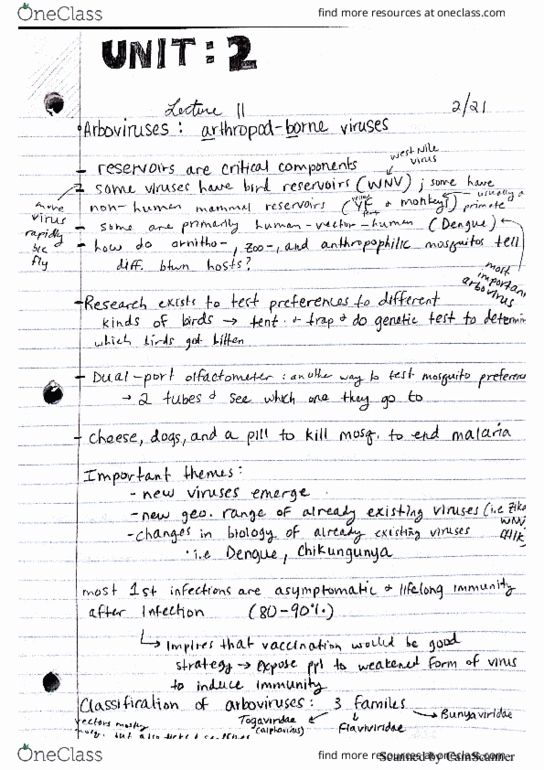 OneClass
find more resources at oneclass.com
UNIT: 2
Lecture 11
2/21
• Arboviruses: arthropod-borne viruses
West Nile virus
- reservoirs are critical components
- some viruses have bird reservoirs (WNV); some have
usually a primate
non-human mammel reservoirs (YF + monkeys)
- some are primarily human-vector-human (Dengue)
move virus rapidly b/c fly
- how do ornitho-, zoo-, and anthropophilic mosquitos tell
diff. btwn hosts?
most important arbovirus
- Research exists to test preferences to different
kinds of birds → tent + trap + do genetic test to determin
which birds got bitten
- Dual-port olfactometer: another way to test mosquito preferen
→ 2 tubes + see which one they go to
- cheese, dogs, and a pill to kill mosq. to end malaria
Important themes:
- new viruses emerge
- new geo. range of already existing viruses (i.e Zika
WNV
CHIK)
- changes in biology of already existing viruses
• i.e Dengue, Chikungunya
most 1st infections are asymptomatic + lifelong immunity
after infection (80-90%)
↳ Implies that vaccination would be good
strategy → expose ppl to weakened form of virus
to induce immunity
Classification of arboviruses: 3 familes
→ Bunyaviridae
Togaviridae (alphavirus)
Flaviviridae
vectors mostly
mosq. but also
OneClass
find more resources at oneclass.com
Scanned by CamScanner